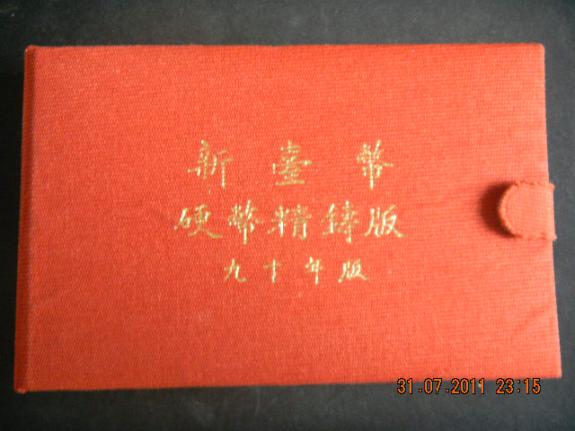 新臺幣
硬幣精鑄版
九十年版
31.07.2011 23:15